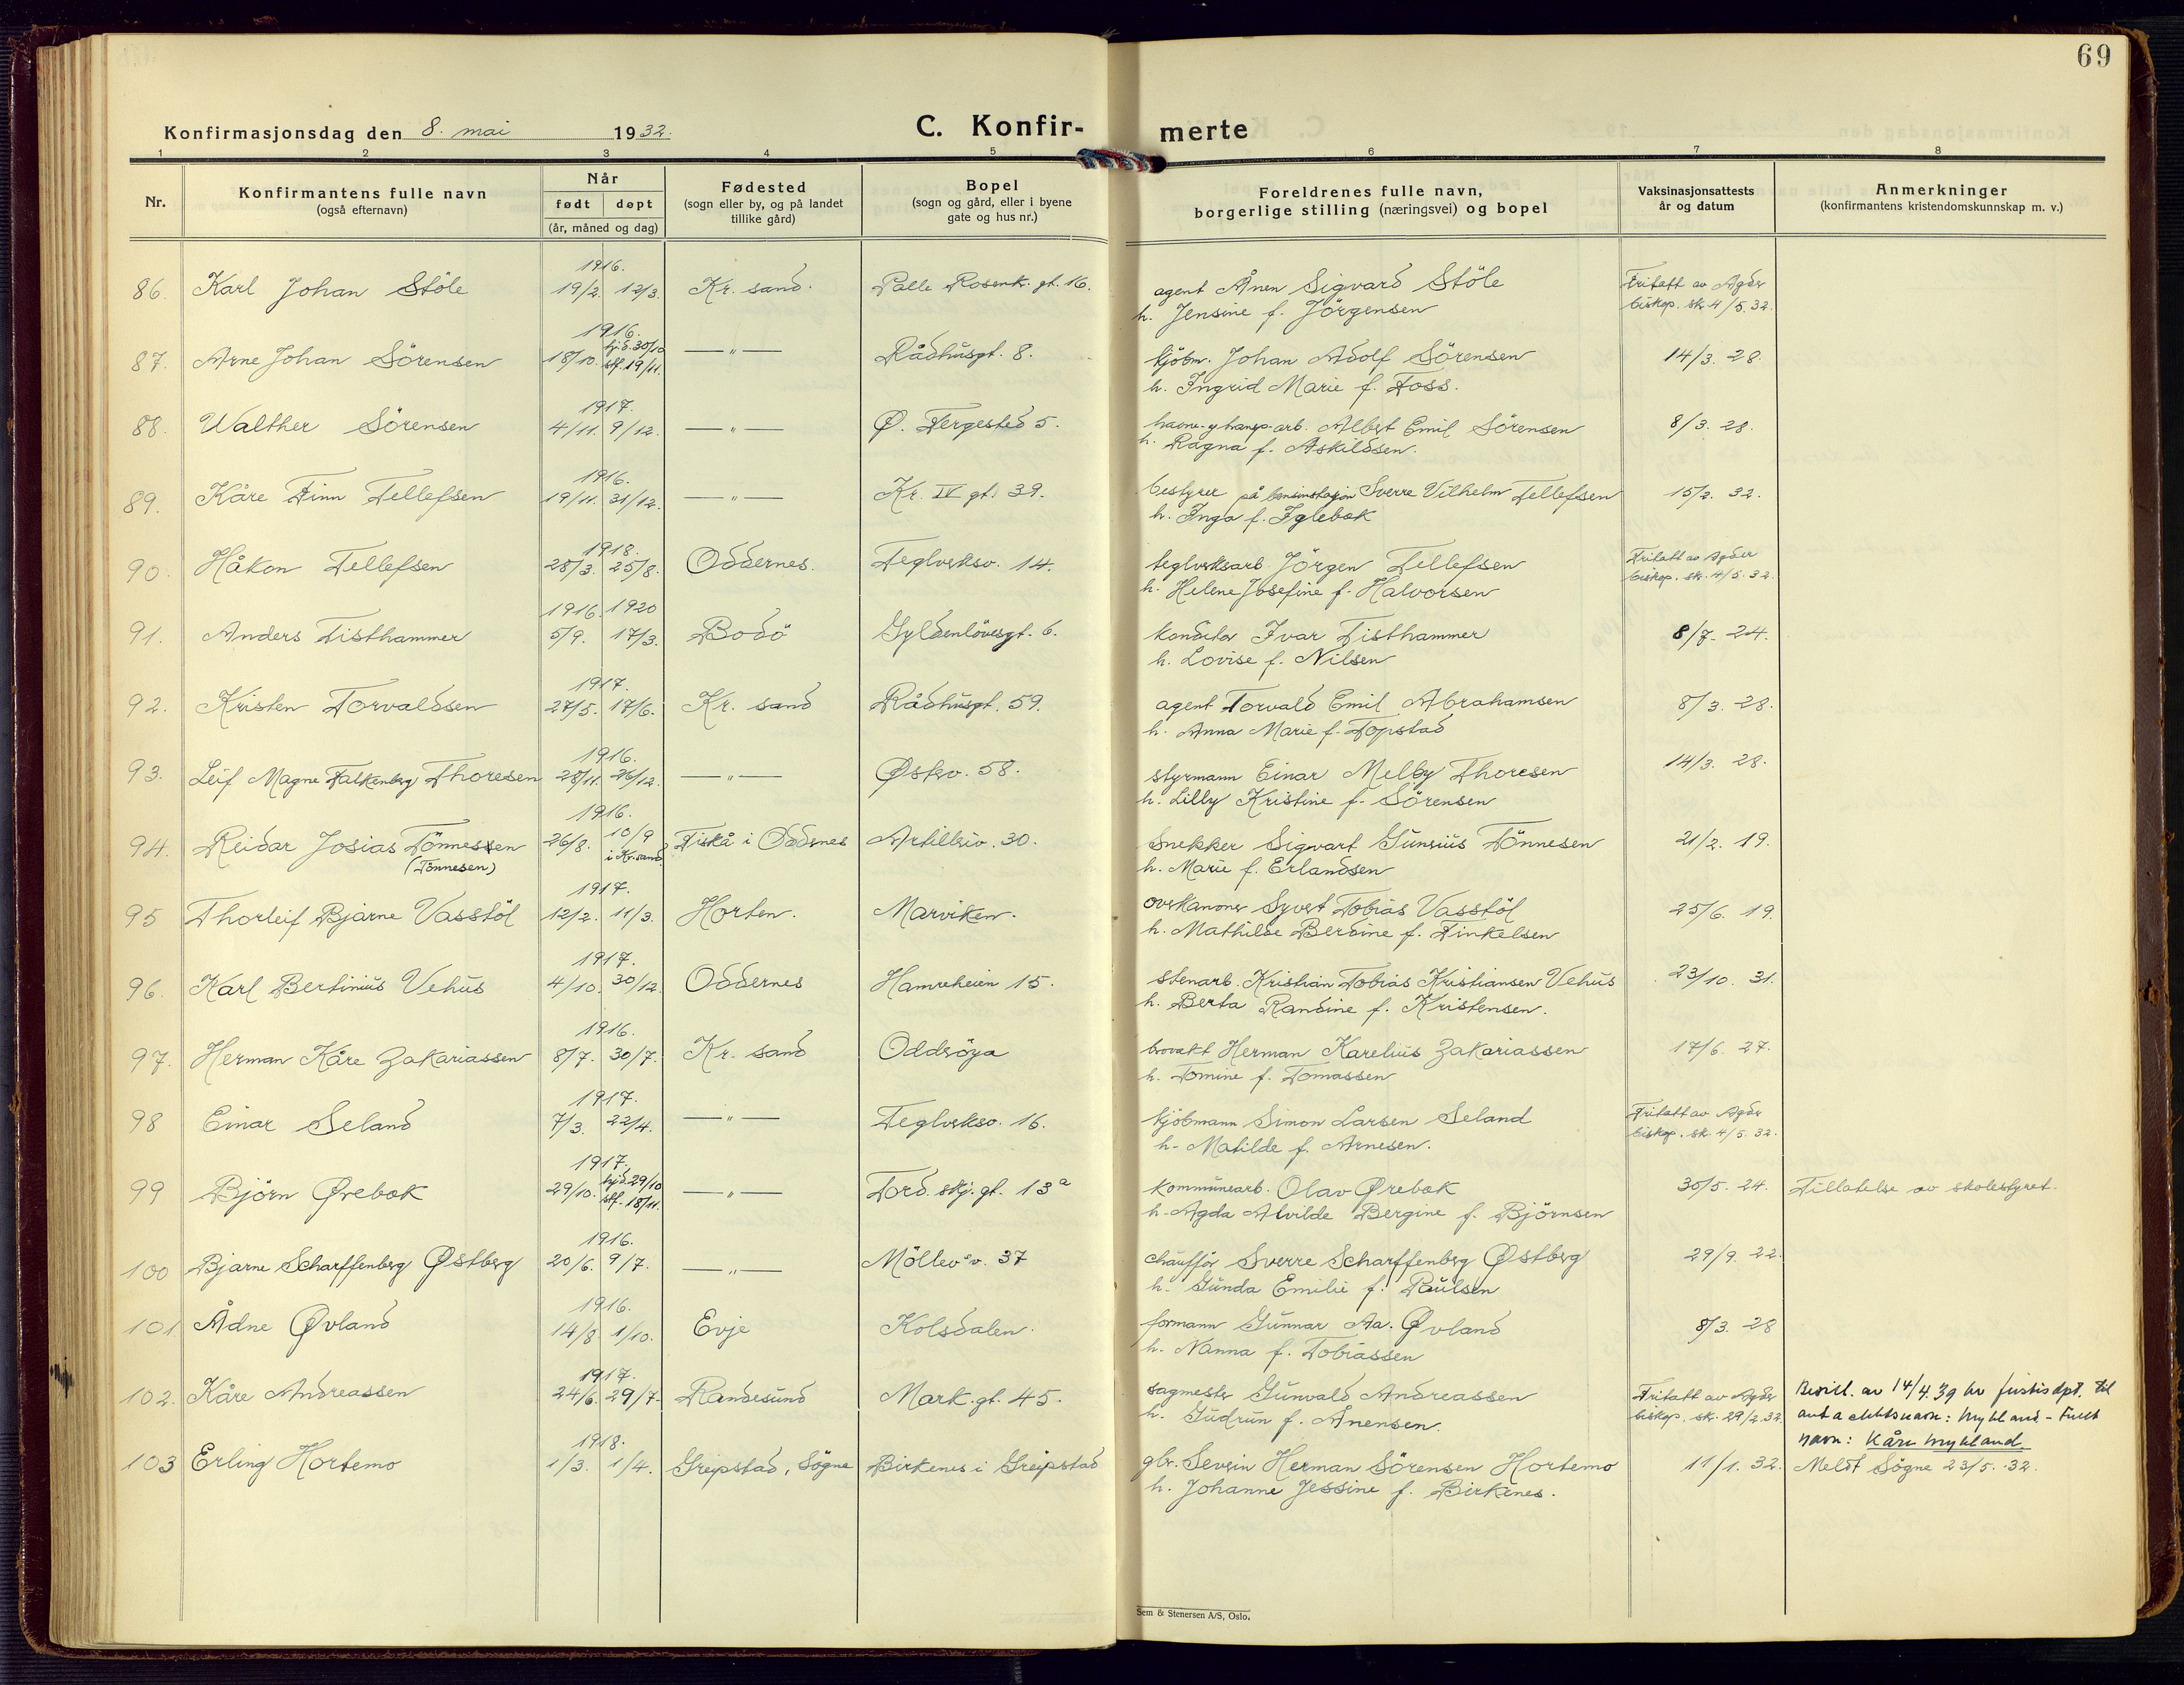 69
Konfirmasjonsdag den 8. mai 1932.
C. Konfir-merte
1 2 3 4 5 6 7 8
Nr.
Konfirmantens fulle navn
(også efternavn)
Når
født døpt
(år, måned og dag)
Fødested
(sogn eller by, og på landet
tillike gård)
Bopel
(sogn og gård, eller i byene
gate og hus nr.)
Foreldrenes fulle navn,
borgerlige stilling (næringsvei) og bopel
Vaksinasjonsattests
år og datum
Anmerkninger
(konfirmantens kristendomskunnskap m. v.)
1916.
86. Karl Johan Stöle 19/2. 12/3. Kr. sand. Palle Rosenk. gt. 16. agent Ånen Sigvard Stöle Fritatt av Agder
h. Jensine f. Jörgensen biskop. skr. 4/5. 32.
1916.
87. Arne Johan Sörensen 18/10. hjd. 30/10 stf. 19/11. —"— Rådhusgt. 8. kjöbm. Johan Adolf Sörensen 14/3. 28.
h. Ingrid Marie f. Foss.
1917.
88. Walther Sörensen 4/11. 9/12. —"— Ø. Fergested 5. havne- og transp. arb. Albert Emil Sörensen 8/3. 28.
h. Ragna f. Askildsen.
1916.
89. Kåre Finn Tellefsen 19/11. 31/12. —"— Kr. IV gt. 39. bestyrer på bensinstasjon Sverre Vilhelm Tellefsen 15/2. 32.
h. Inga f. Iglebæk
1918.
90. Håkon Tellefsen 28/3. 25/8. Oddernes. Teglverksv. 14. teglverksarb. Jörgen Tellefsen Fritatt av Agder
h. Helene Josefine f. Halvorsen biskop. skr. 4/5. 32.
1916. 1920
91. Anders Tisthammer 5/9. 17/3. Bodö Gyldenlövesgt. 6. konditor Ivar Tisthammer 8/7. 24.
h. Lovise f. Nilsen
1917.
92. Kristen Torvaldsen 27/5. 17/6. Kr. sand Rådhusgt. 59. agent Torvald Emil Abrahamsen 8/3. 28.
h. Anna Marie f. Topstad
1916.
93. Leif Magne Falkenberg Thoresen 28/11. 26/12. —"— Østerv. 58. styrmann Einar Melby Thoresen 14/3. 28.
h. Lilly Kristine f. Sörensen
1916.
94. Reidar Josias Tönnessen 26/8. 10/9 i Kr. sand. Fiskå i Oddernes Artilleriv. 30. snekker Sigvart Gunvius Tönnesen 21/2. 19.
(Tönnesen) h. Marie f. Erlandsen
1917.
95 Thorleif Bjarne Vasstöl 12/2. 11/3. Horten. Marviken. overkanoner Syvert Tobias Vasstöl 25/6. 19.
h. Mathilde Berdine f. Finkelsen
1917.
96. Karl Bertinius Vehus 4/10. 30/12. Oddernes Hamreheien 15. stenarb. Kristian Tobias Kristiansen Vehus 23/10. 31.
h. Berta Randine f. Kristensen.
1916.
97. Herman Kåre Zakariassen 8/7. 30/7. Kr. sand Odderöya brovakt Herman Karelius Zakariassen 17/6. 27.
h. Tomine f. Tomassen
1917.
98 Einar Seland 7/3. 22/4. —"— Teglverksv. 16. kjöbmann Simon Larsen Seland Fritatt av Agder
h. Matilde f. Arnesen. biskop. sk. 4/5. 32.
1917.
99 Björn Ørebæk 29/10. hjd. 29/10 stf. 18/11. —"— Tord. skj. gt. 13ᵃ kommunearb. Olav Ørebæk 30/5. 24. Tillatelse av skolestyret.
h. Agda Alvilde Bergine f. Björnsen
1916.
100 Bjarne Scharffenberg Østberg 20/6. 9/7. —"— Möllev. v. 37 chauffør Sverre Scharffenberg Østberg 29/9. 22.
h. Gunda Emilie f. Paulsen
1916.
101 Ådne Øvland 14/8 1/10. Evje Kolsdalen. formann Gunnar Aa. Øvland 8/3. 28
h. Nanna f. Tobiassen
1917.
102. Kåre Andreassen 24/6. 29/7. Randesund Mark. gt. 45. sagmester Gunvald Andreassen Fritatt av Agder Bevill. av 14/4. 39 fra justisdpt. til
h. Gudrun f. Ånensen. biskop. sk. 29/2. 32. anta slektsnavn: Mykland – Fullt
navn: Kåre Mykland
1918.
103 Erling Hortemo 1/3. 1/4. Greipstad, Sögne Birkenes i Greipstad gbr. Severin Herman Sörensen Hortemo 11/1. 32. Meldt Sögne 23/5. 32.
h. Johanne Jessine f. Birkenes.
Sem & Stenersen A/S, Oslo.